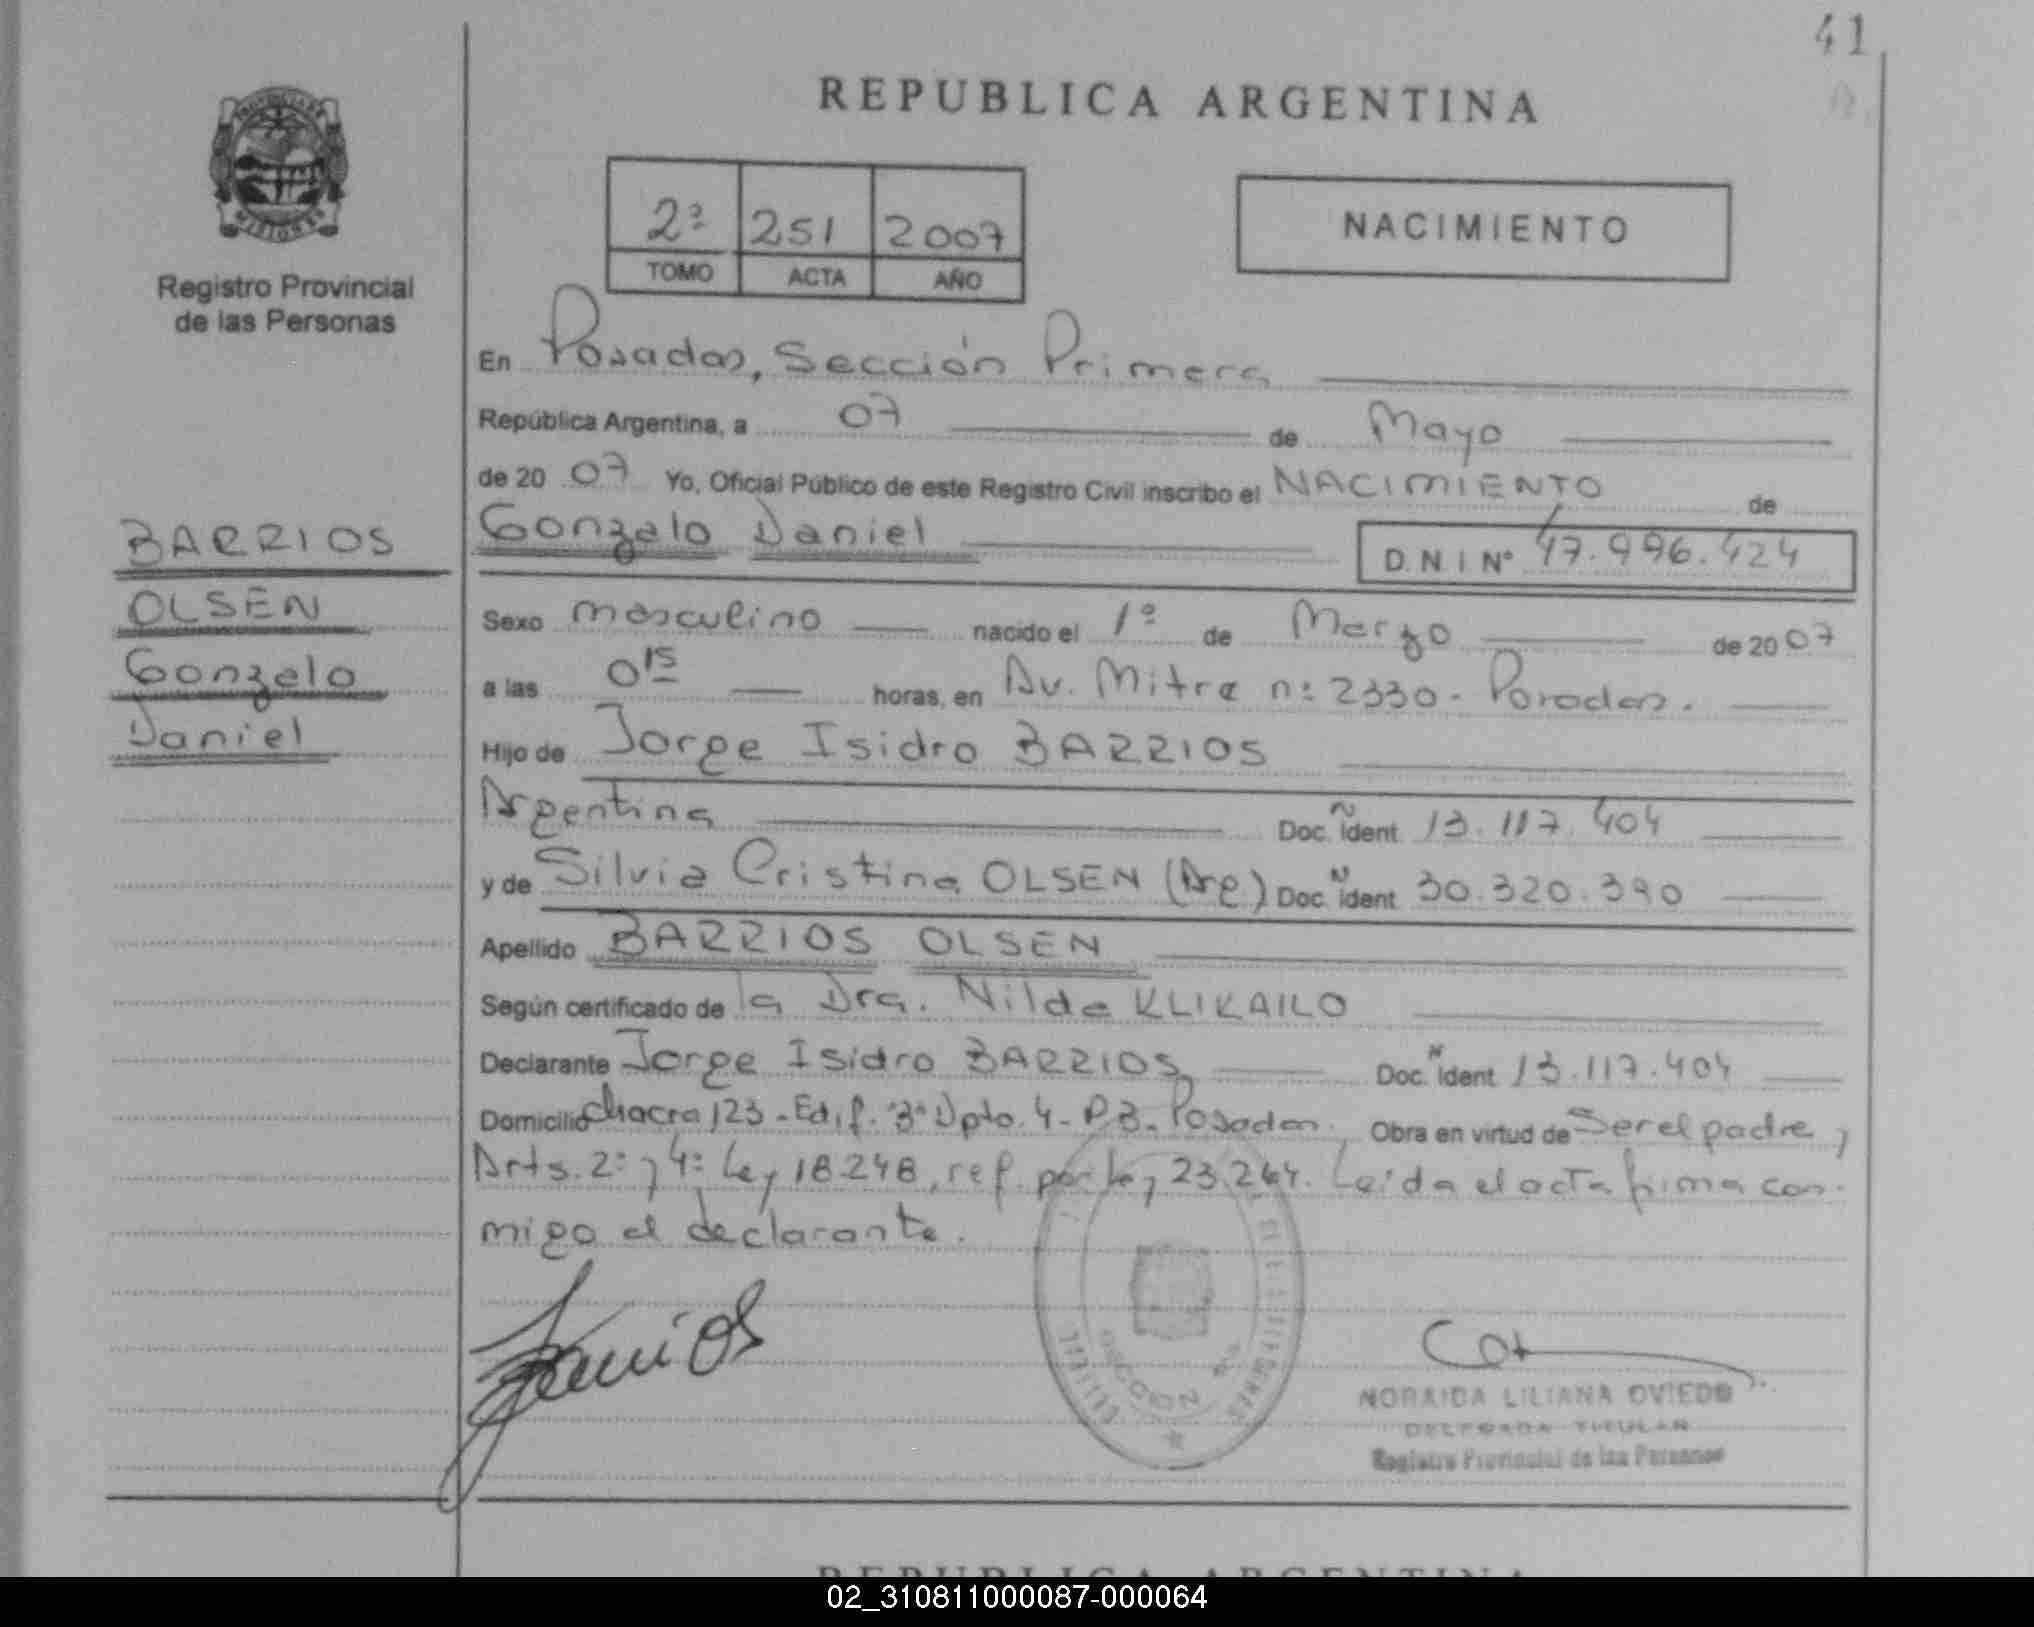 41
REPUBLICA ARGENTINA
PROVINCIA DE
MISIONES
Registro Provincial
de las Personas
2º 251 2007
TOMO ACTA AÑO
NACIMIENTO
En Posadas, Sección Primera
República Argentina, a 07 de Mayo
de 20 07 Yo, Oficial Público de este Registro Civil inscribo el NACIMIENTO de
Gonzalo Daniel
D.N.I Nº 47.996.424
BARRIOS
OLSEN
Gonzalo
Daniel
Sexo masculino nacido el 1º de Marzo de 20 07
a las 0 15 horas, en Av. Mitre nº 2330 - Posadas.
Hijo de Jorge Isidro BARRIOS
Argentina Doc. Ñ Ident 13.117.404
y de Silvia Cristina OLSEN (Arg) Doc. N Ident 30.320.390
Apellido BARRIOS OLSEN
Según certificado de la Dra. Nilda KLIKAILO
Declarante Jorge Isidro BARRIOS Doc. N Ident 13.117.404
Domicilio Chacra 123 - Edif. 3º Dpto. 4 - PB. Posadas. Obra en virtud de Ser el padre y
Arts. 2º y 4º Ley 18.248, ref. por Ley 23.264. Leída el acta firma con-
migo el declarante.
SECCION
NORAIDA LILIANA OVIEDO
DELEGADA TITULAR
Registro Provincial de las Personas
REPUBLICA ARGENTINA
02_310811000087-000064